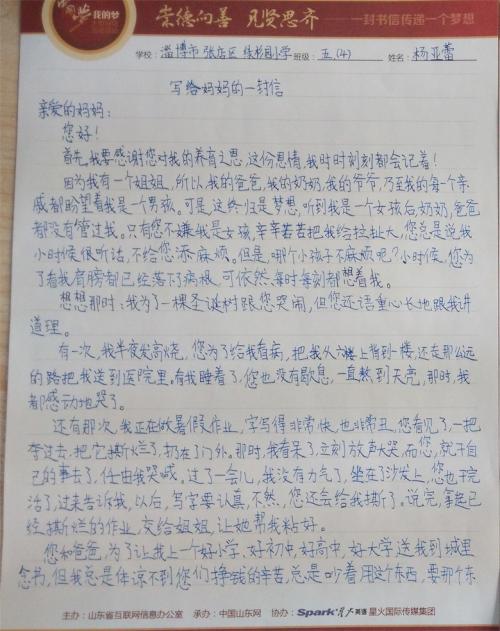 中国梦 我的梦
崇德向善 见贤思齐 ——一封书信传递一个梦想
学校：淄博市张店区 小学 班级：五.(4) 姓名：杨亚蕾
写给妈妈的一封信
亲爱的妈妈：
您好！
首先,我要感谢您对我的养育之恩，这份恩情,我时时刻刻都会记着！
因为我有一个姐姐，所以,我的爸爸，我的奶奶,我的爷爷,乃至我的每一个亲
戚都盼望着我是个男孩。可是,这终归是梦想,听到我是一个女孩后,奶奶,爸爸
都没有管过我。只有您不嫌我是女孩,辛辛苦苦把我给拉扯大，您总是说我
小时候很听话,不给您添麻烦。但是,哪个小孩子不麻烦呢？小时候,您为
了看我,肩膀都已经落下了病根,可依然,每时每刻都想着我。
想想那时：我为了一棵圣诞树跟您哭闹，但您还语重心长地跟我讲
道理。
有一次，我半夜发高烧，您为了给我看病，把我从六楼上背到一楼,还走那么远
的路把我送到医院里。看我睡着了,您也没有歇息，一直熬到天亮,那时,我
都感动地哭了。
还有那次,我正在做暑假作业，字写得非常快,也非常丑,您看见了,一把
夺过去,把它撕烂了,扔在了门外。那时,我看呆了,立刻放声大哭,而您,就干自
己的事去了,任由我哭喊。过了一会儿,我没有力气了,坐在了沙发上,您也干完
活了,过来告诉我,以后，写字要认真,不然，您还会给我撕了。说完,拿起已
经撕烂的作业，交给姐姐，让她帮我粘好。
您和爸爸，为了让我上一个好小学,好初中,好高中,好大学送我到城里
念书,但我总是体谅不到您们挣钱的辛苦,总是吵着用这个东西，要那个东
主办：山东省互联网信息办公室 承办：中国山东网 协办：Spark 星火英语 星火国际传媒集团